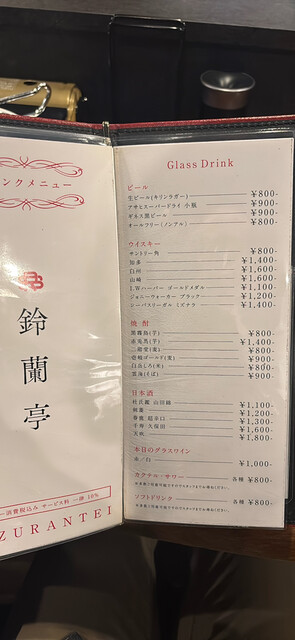 ンクメニュー
鈴蘭亭
サービス料 一律 10%
ZURANTEI
Glass Drink
ビール
生ビール(キリンラガー) ¥800-
アサヒスーパードライ 小瓶 ¥900-
ギネス黒ビール ¥900-
オールフリー(ノンアル) ¥800-
ウイスキー
サントリー角 ¥800-
知多 ¥1,400-
白州 ¥1,600-
山崎 ¥1,600-
I.W.ハーパー ゴールドメダル ¥1,100-
ジョニーウォーカー ブラック ¥1,200-
シーバスリーガル ミズナラ ¥1,400-
焼酎
黒霧島(芋) ¥800-
赤兎馬(芋) ¥1,400-
二階堂(麦) ¥800-
壱岐ゴールド(麦) ¥900-
白岳しろ(米) ¥800-
雲海(そば) ¥900-
日本酒
杜氏鑑 山田錦 ¥1,100-
¥1,200-
春鹿 超辛口 ¥1,300-
千寿 久保田 ¥1,600-
天吹 ¥1,800-
本日のグラスワイン
赤/白 ¥1,000-
カクテル・サワー 各種 ¥800-
ソフトドリンク 各種 ¥800-